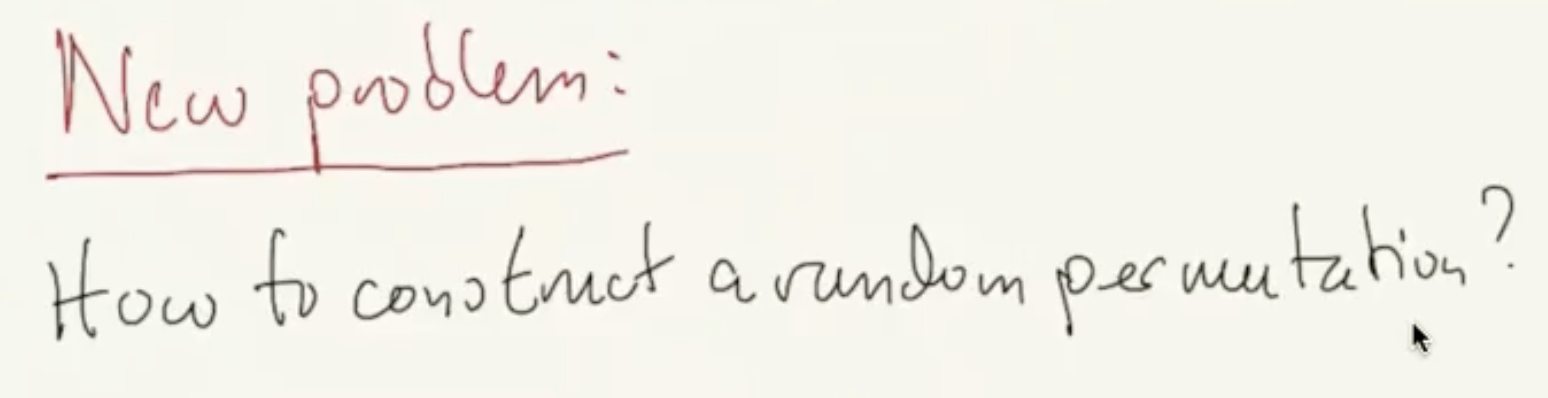 New problem:
How to construct a random permutation?